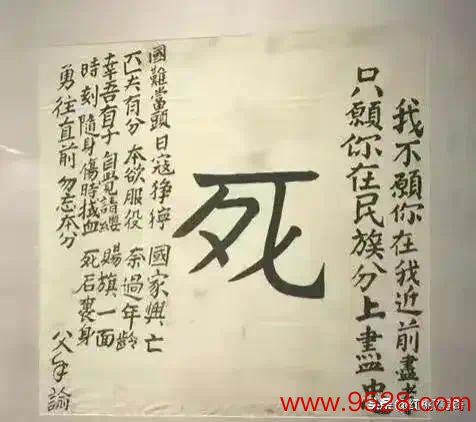 我不願你在我近前盡孝
只願你在民族分上盡忠
死
國難當頭 日寇猙獰 國家興亡
匹夫有分 本欲服役 奈過年齡
幸吾有子 自覺請纓 賜旗一面
時刻隨身 傷時拭血 死后裹身
勇往直前 勿忘本分
父手諭
www.9528.com